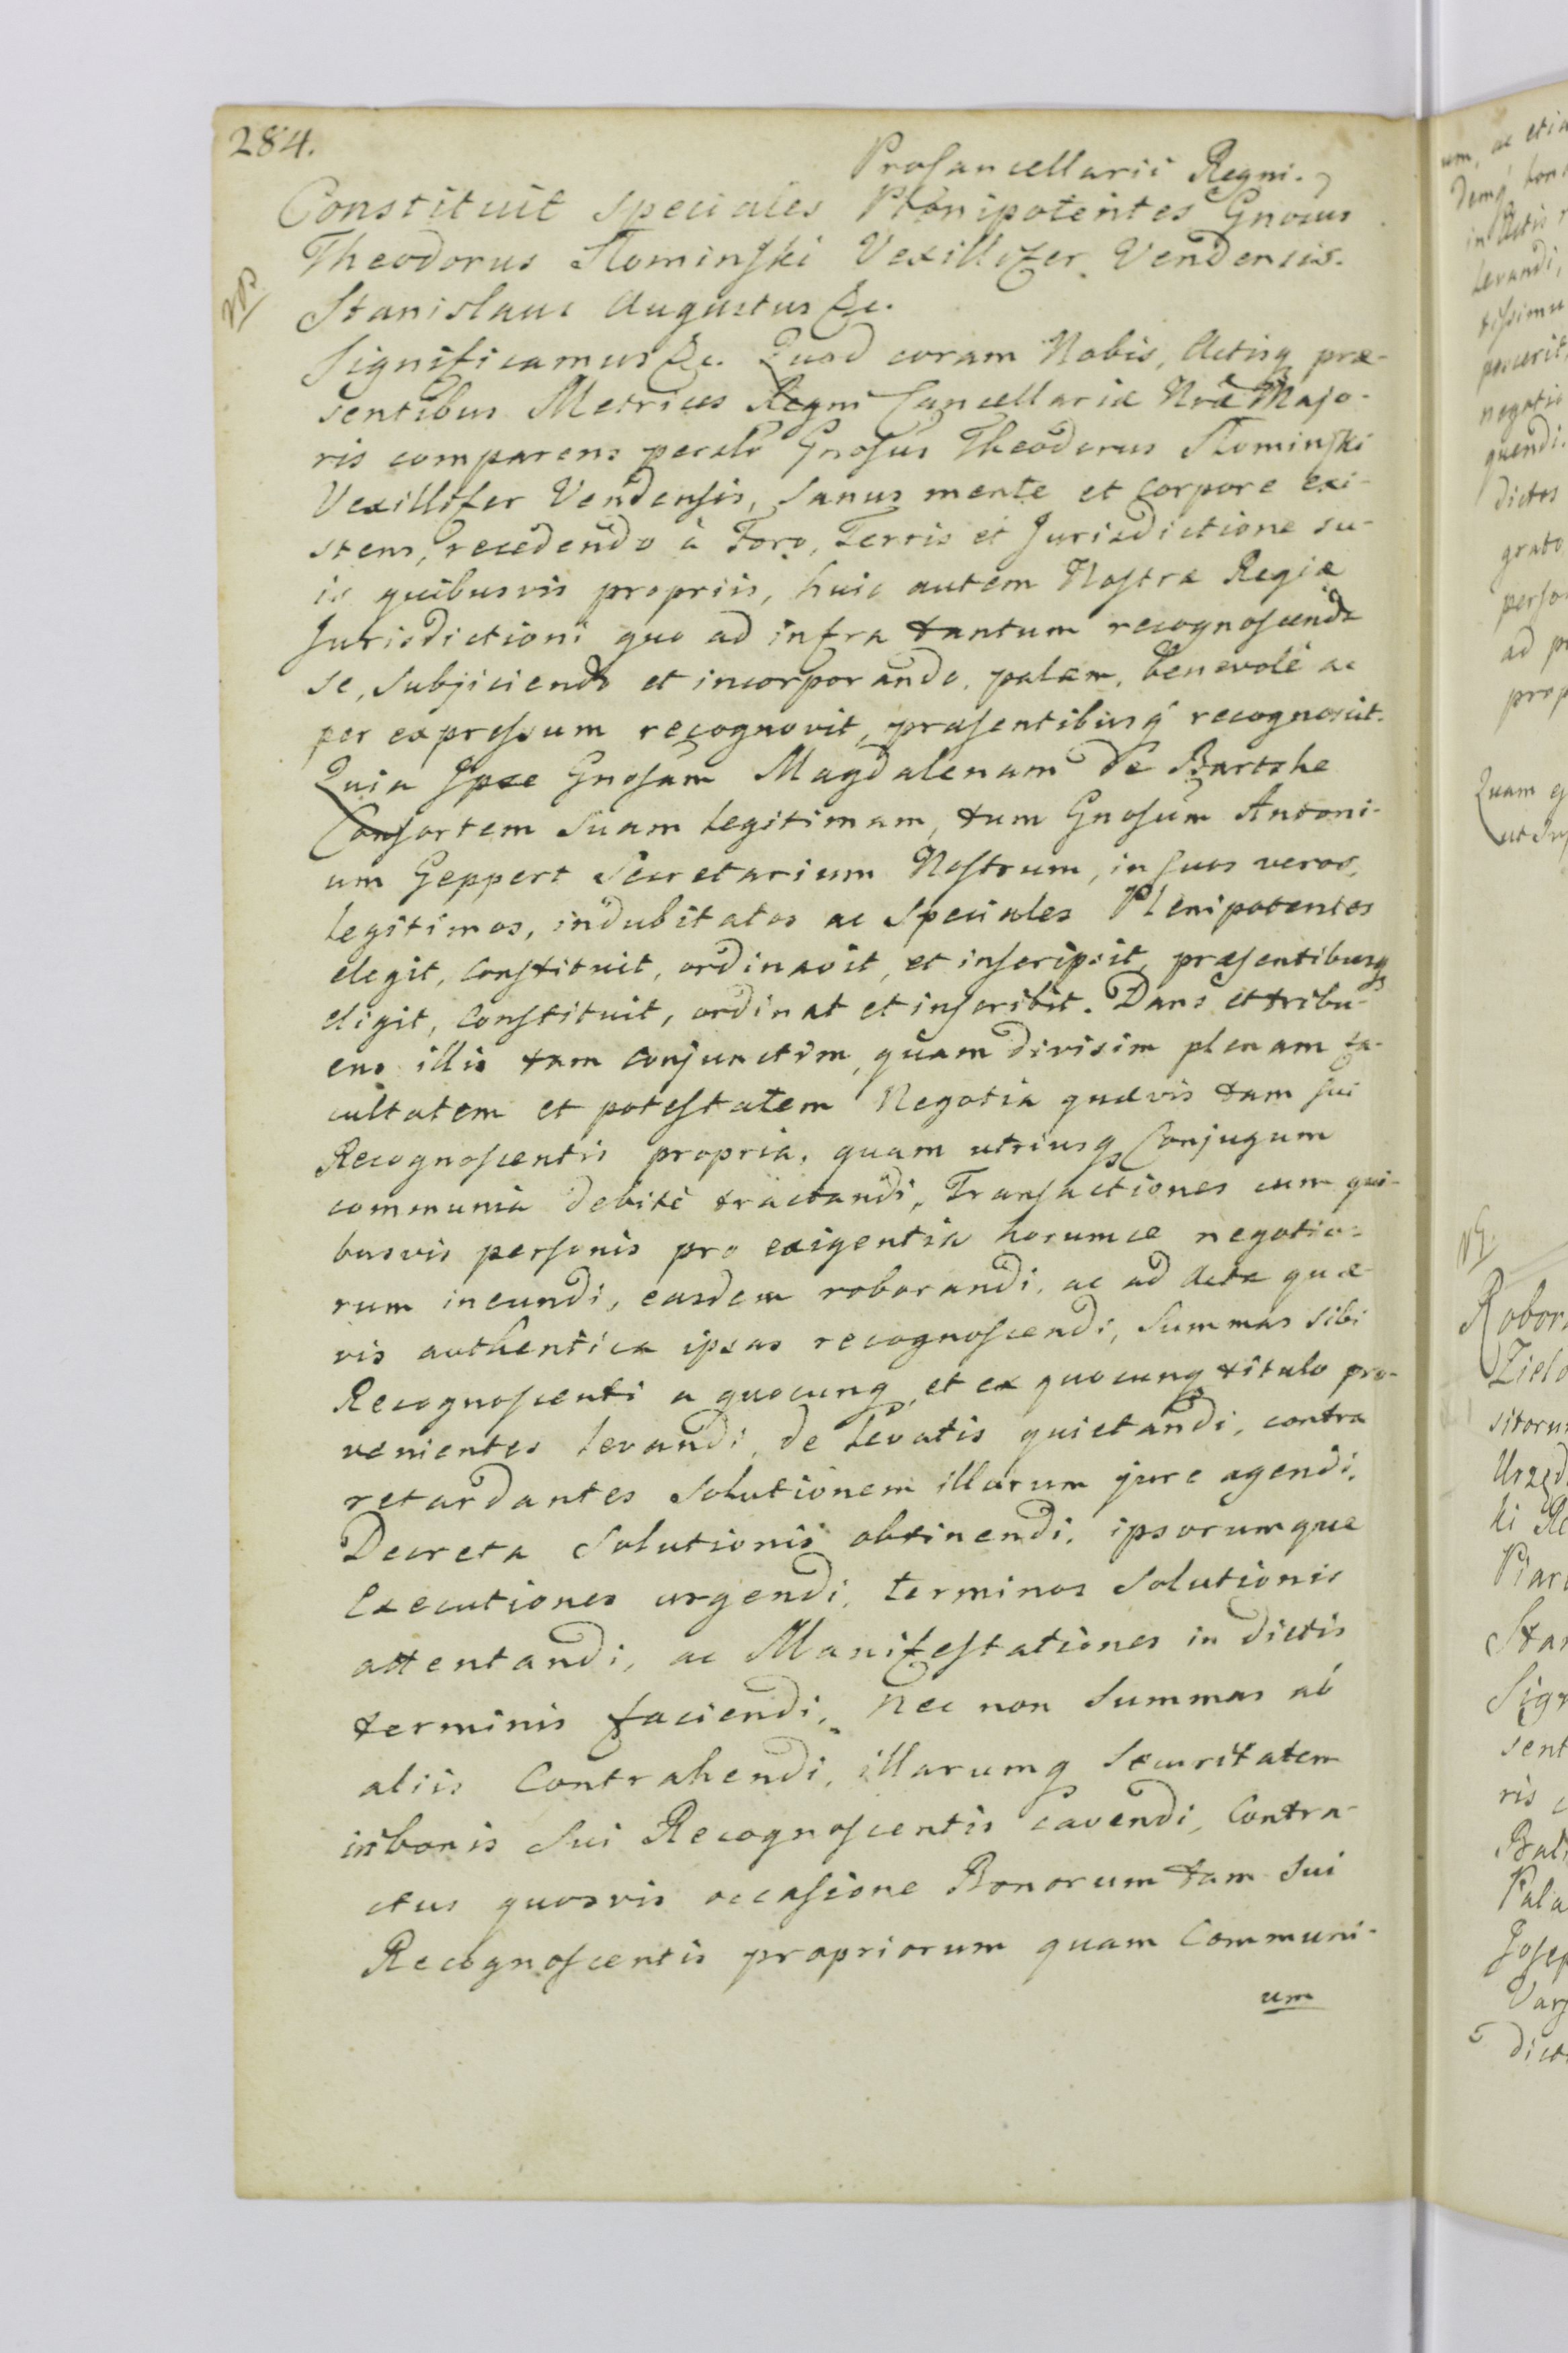 284.
Procancellarii Regni.
Constituit speciales Plenipotentes Gnosus
Theodorus Słominski Vexillifer Vendensis.
Stanislaus Augustus &c.
Significamus &c. Quod coram Nobis, Actisq præ-
sentibus Metrices Regni Cancellariæ Nræ Majo-
ris comparens personlr Gnosus Theodorus Słominski
Vexillifer Vendensis, sanus mente et corpore exi-
stens, recedendo à Foro, Terris et Jurisdictione su-
is quibusvis propriis, huic autem Nostræ Regiæ
Jurisdictioni quo ad infra tantum recognoscenda
se, subjiciendo et incorporando, palam, benevolè ac
per expressum recognovit, præsentibusq recognoscit.
Quia Ipse Gnosam Magdalenam de Bartshe
Consortem Suam legitimam, tum Gnosum Antoni-
um Geppert Secretarium Nostrum, in suos veros,
legitimos, indubitatos ac speciales Plenipotentes
elegit, constituit, ordinavit, et inscripsit, præsentibusq
eligit, constituit, ordinat et inscribit. Dans et tribu-
ens illis tam conjunctim, quam divisim plenam fa-
cultatem et potestatem Negotia quævis tam sui
Recognoscentis propria, quam utriusq Conjugum
communia debitè tractandi, Transactiones cum qui-
busvis personis pro exigentia horumce negotio-
rum ineundi, easdem roborandi, ac ad Acta quæ-
vis authentica ipsas recognoscendi, Summas sibi
Recognoscenti a quocunq et ex quocunq titulo pro-
venientes levandi, de levatis quietandi, contra
retardantes solutionem illarum jure agendi,
Decreta solutionis obtinendi, ipsorumque
Executiones urgendi, terminos solutionis
attentandi, ac Manifestationes in dictis
terminis faciendi, Nec non Summas ab
aliis Contrahendi, illarumq Securitatem
in bonis sui Recognoscentis cavendi, Contra-
ctus quosvis occasione Bonorum tam sui
Recognoscentis propriorum quam Communi-
um